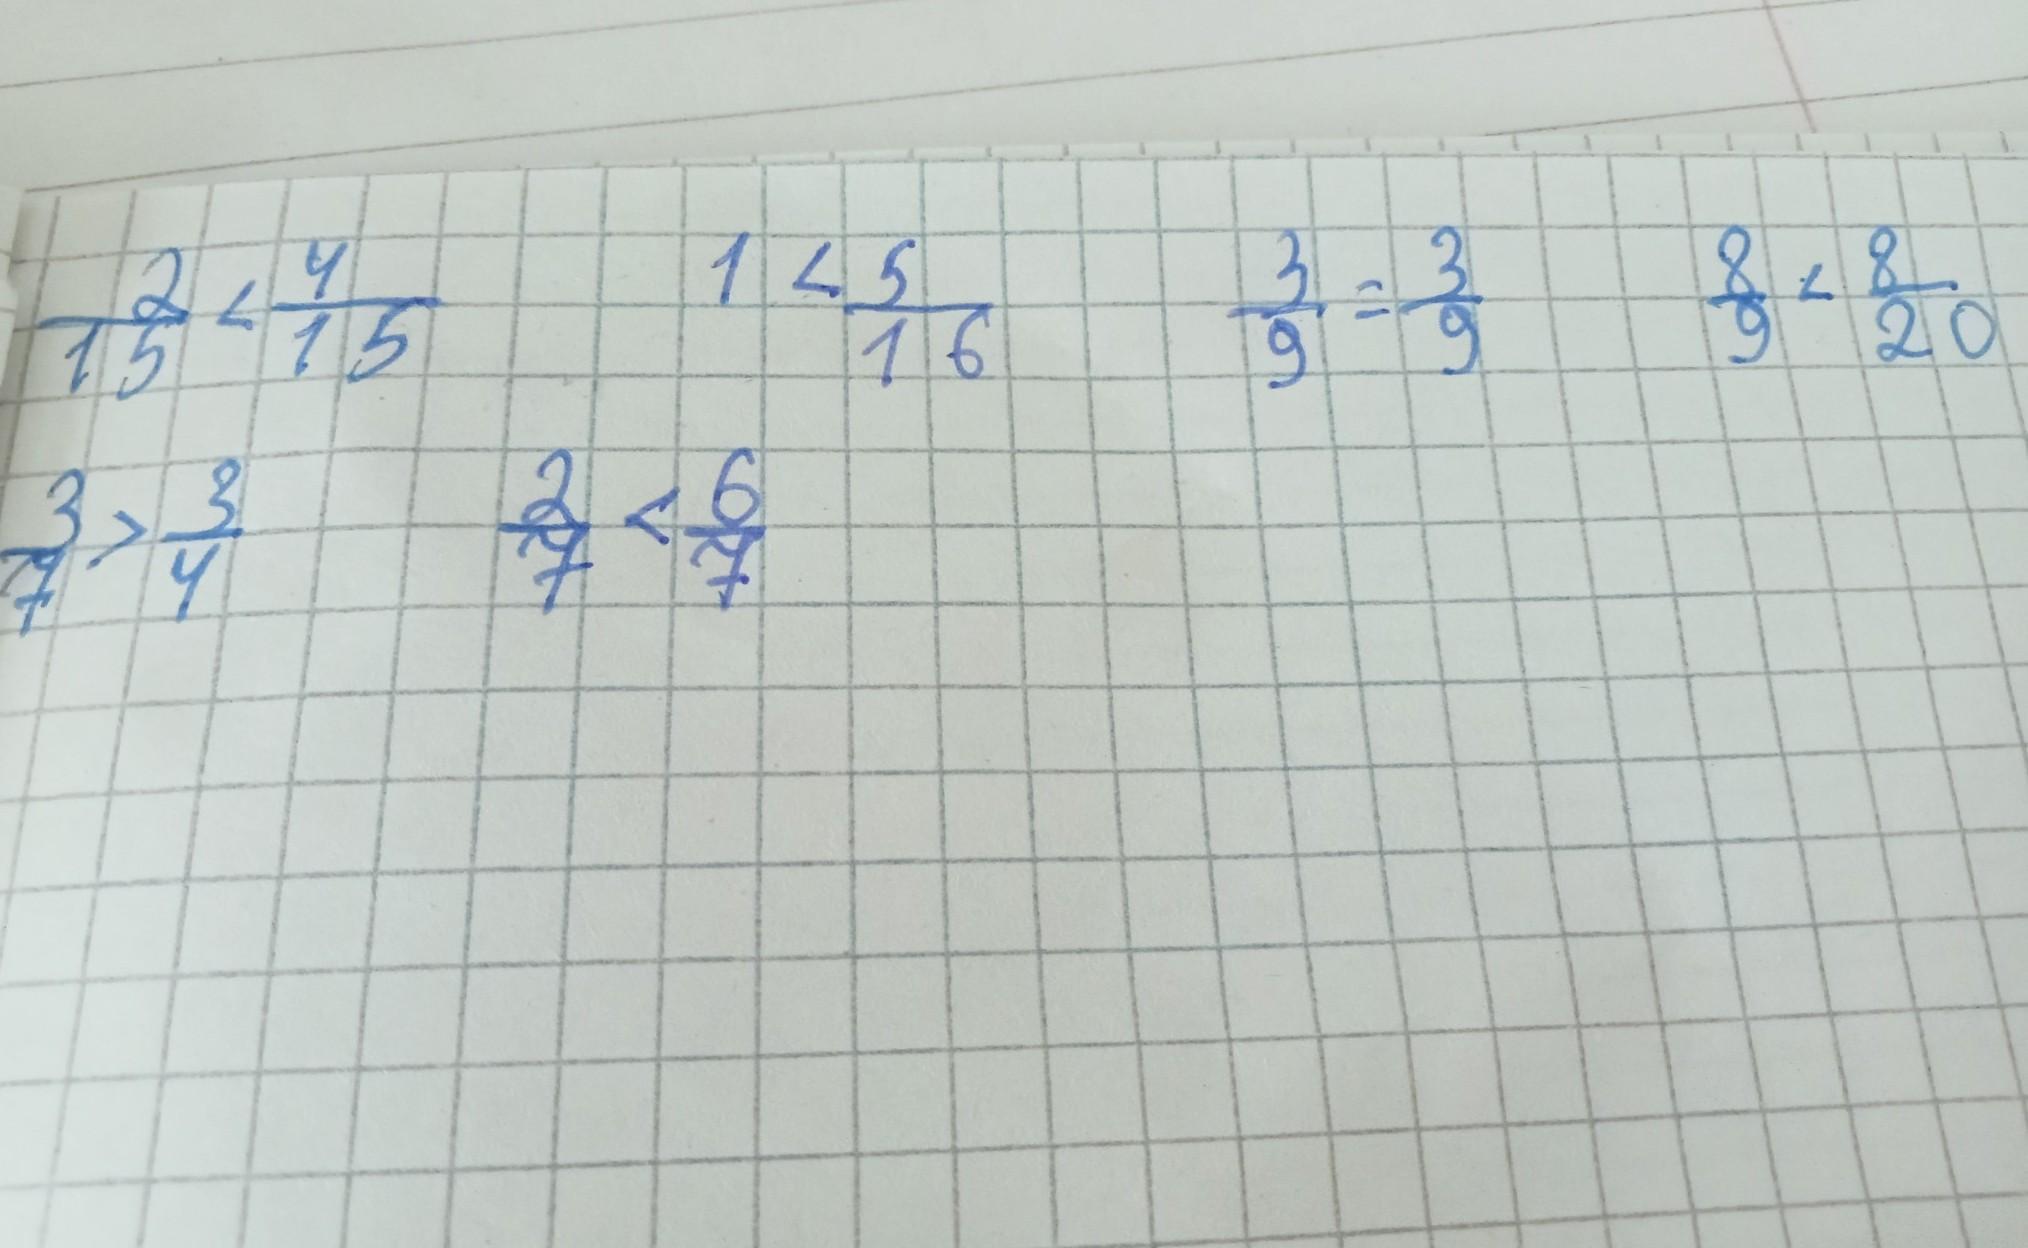 2/15 < 4/15 1 < 5/16 3/9 = 3/9 8/9 < 8/20
3/7 > 3/4 2/7 < 6/7